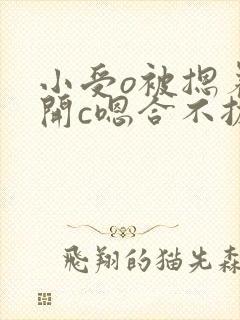 小受o被摁着
開c嗯合不拢
飛翔的猫先森